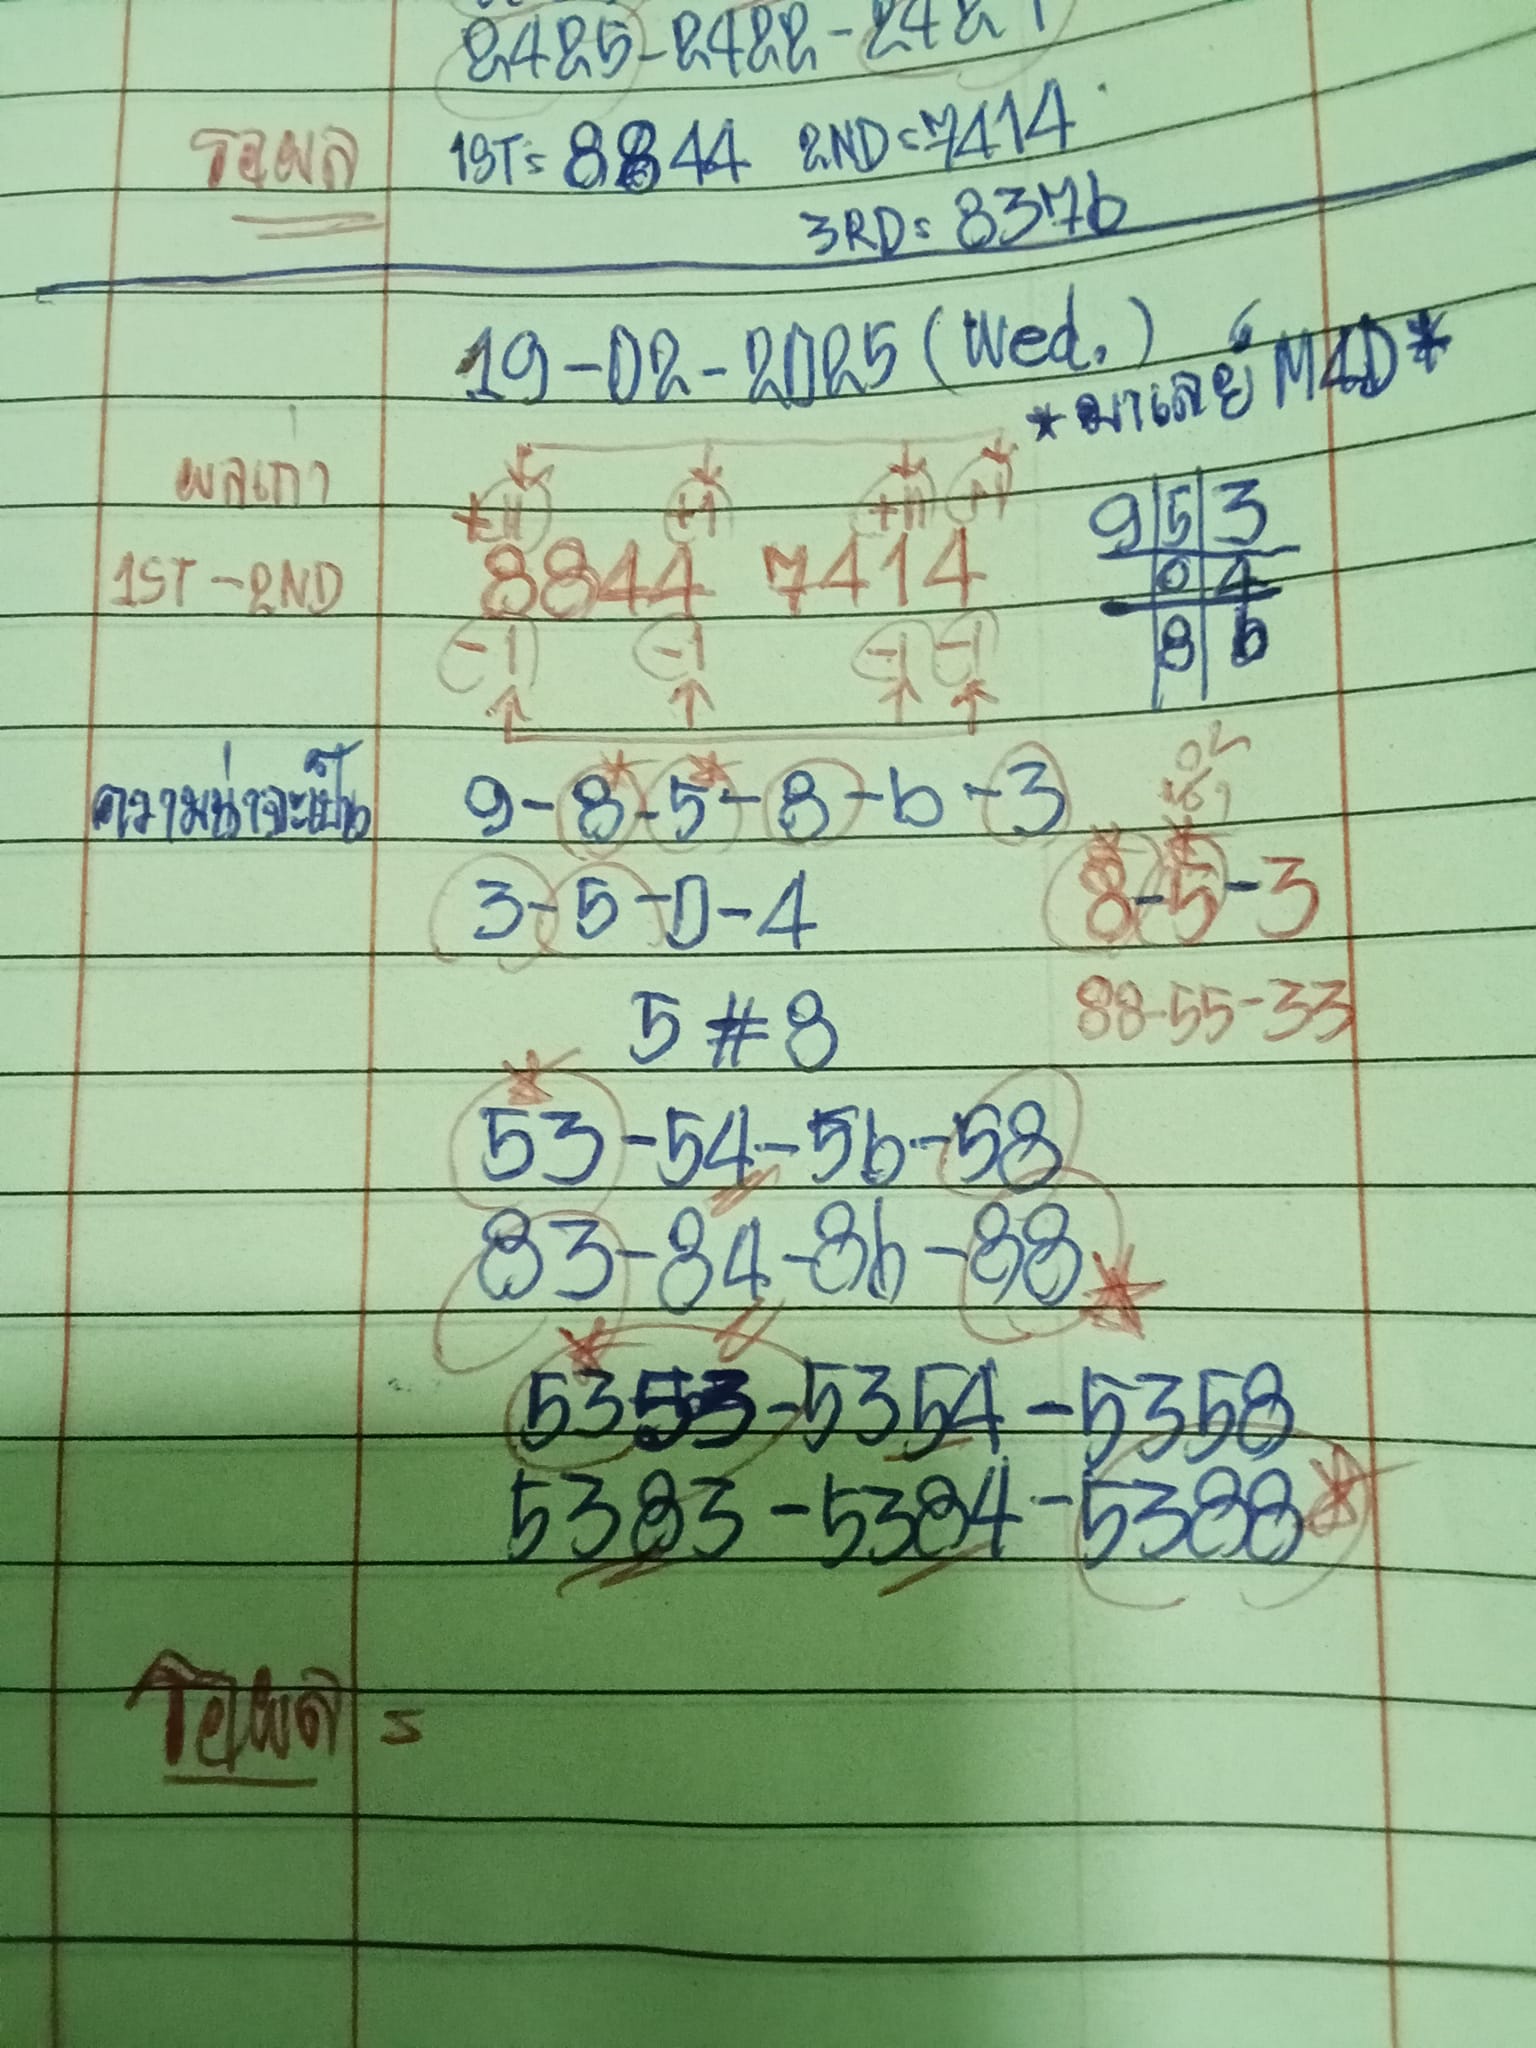 2425-2422-242
รอผล 1ST= 8844 2ND=7414
3RD= 8376
19-02-2025 (Wed.)
*มาเลย์ M4D*
ผลเก่า
+11 +1 +11
1ST-2ND 8844 7414
-1 -1 -1 -1
9 5 3
0 4
8 6
ความน่าจะเป็น 9-8-5-8-6-3
3-5-0-4
8-5-3
5#8
88-55-33
53-54-56-58
83-84-86-88
5353-5354-5358
5383-5384-5388
รอผล =